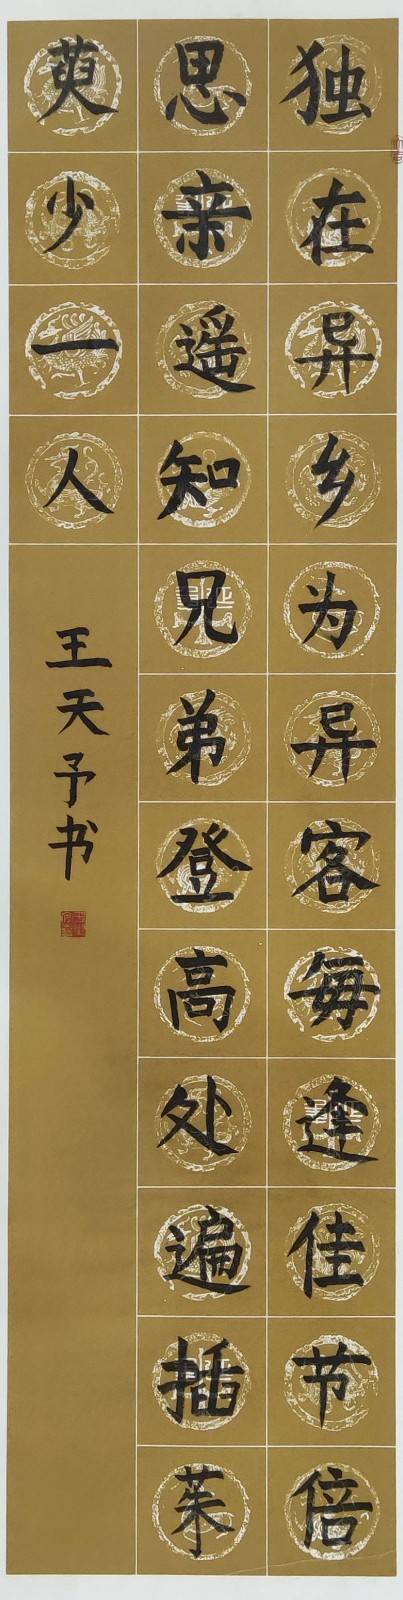 独在异乡为异客每逢佳节倍
思亲遥知兄弟登高处遍插茱
萸少一人
王天予书